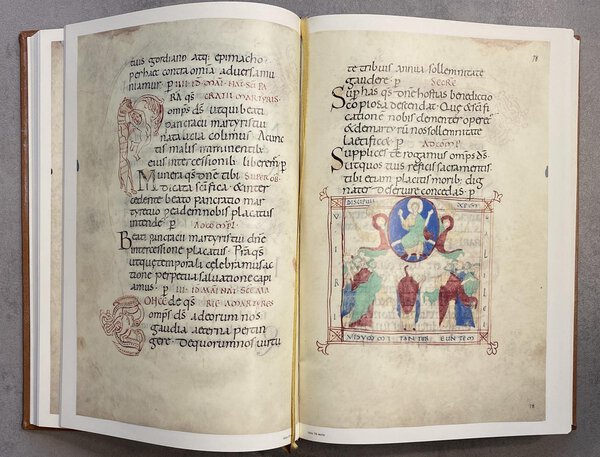 tiuṡ gordiano atq; epimacho.
per haec contra omnia aduersa mu
niamur. p IIII ID MAI NAT SCI PA
CRATII MARTYRIS
omps ds ut qui beati
pancratii martyris tui
natalicia colimus. A cunc
tis malis imminentib;
eius intercessionib; liberem; p
Munera qs dne tibi SUPER OB
dicata scifica. & inter
cedente beato pancratio mar
tyre tuo per eadem nobis placatus
intende. p AD COMPL
Beati pancratii martyris tui dne
intercessione placatus. Pra qs
ut quae temporali celebramus ac
tione perpetua saluatione capi
amus. p III ID MAI NAT SCE MA
RIE AD MARTYRES
Concede qs
omps ds ad eorum nos
gaudia aeterna pertin
gere. De quorum nos uirtu
78
te tribuis annua sollemnitate
gaudere. p SECRE
Sup has qs dne hostias benedictio
copiosa descendat. Que & scifi
cationē nobis clementer oper&
& de martyrū nos sollemnitate
laetific& p AD COMPL
Supplices te rogamus omps ds
ut quos tuis reficis sacramentis
tibi etiam placitis morib; dig
nater deseruire concedas. p
DISCIPULI
VIRI
GALILEI
VIDUM MI RANTUR EUNTEM
78